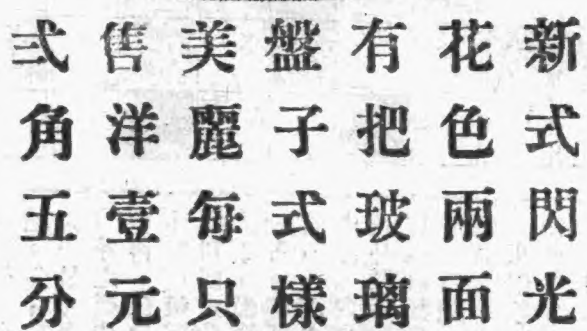 新式閃光
花色兩面
有把玻璃
盤子式樣
美麗每只
售洋壹元
弍角五分